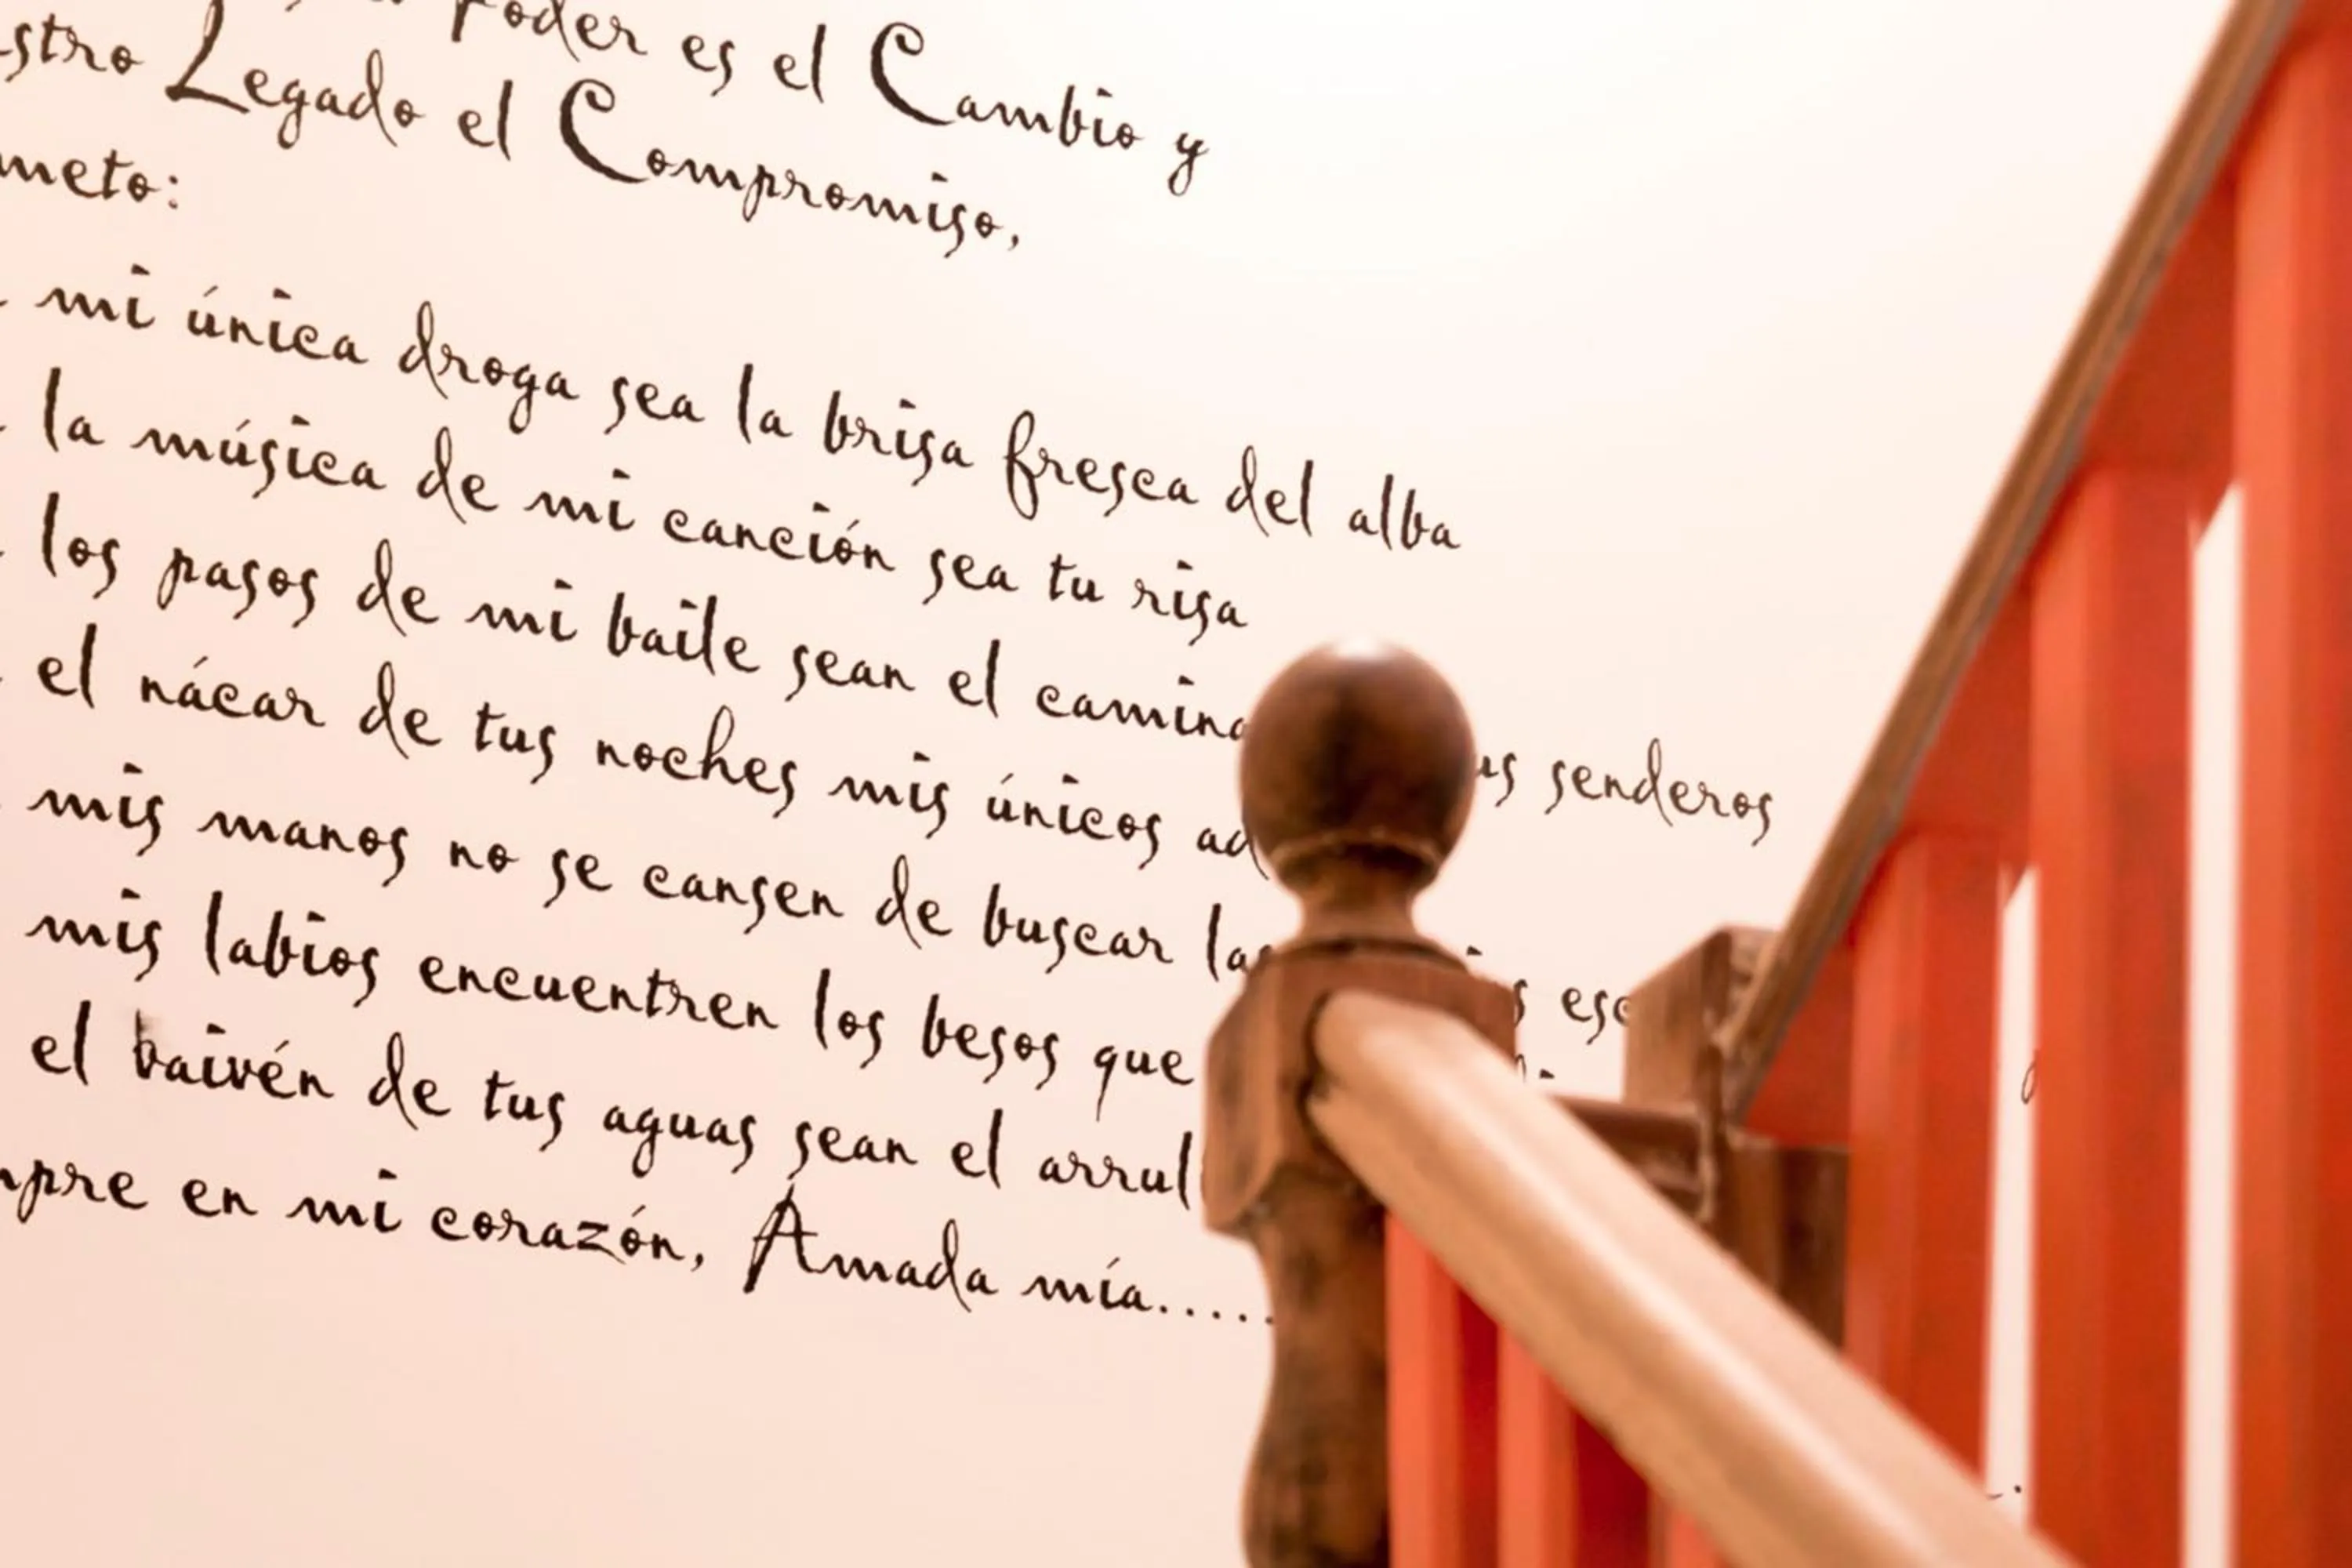 Poder es el Cambio y
Legado el Compromiso,
mi única droga sea la brisa fresca del alba
la música de mi canción sea tu risa
los pasos de mi baile sean el senderos
el nácar de tus noches mis únicos
mis manos no se cansen de buscar
mis labios encuentren los besos que
el baivén de tus aguas sean el
en mi corazón, Amada mía.....